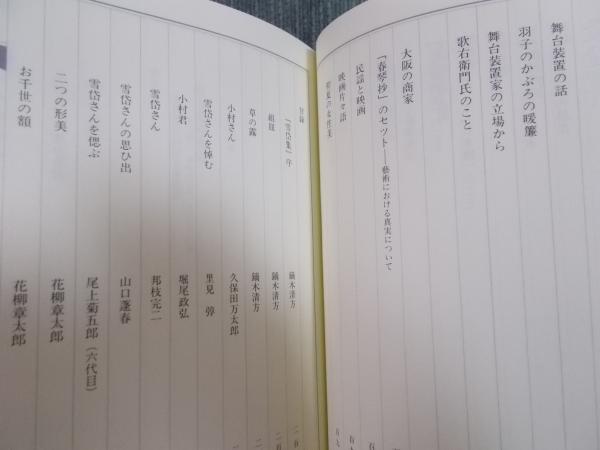 舞台装置の話
羽子のかぶろの暖簾
舞台装置家の立場から
歌右衛門氏のこと
大阪の商家
「春琴抄」のセット——藝術における真実について
民謡と映画
映画片々語
初夏の女性美
付録
「雪岱集」序 鏑木清方
組皿 鏑木清方
草の露 鏑木清方
小村さん 久保田万太郎
雪岱さんを悼む 里見弴
小村君 堀尾政弘
雪岱さん 邦枝完二
雪岱さんの思ひ出 山口蓬春
雪岱さんを偲ぶ 尾上菊五郎(六代目)
二つの形美 花柳章太郎
お千世の額 花柳章太郎